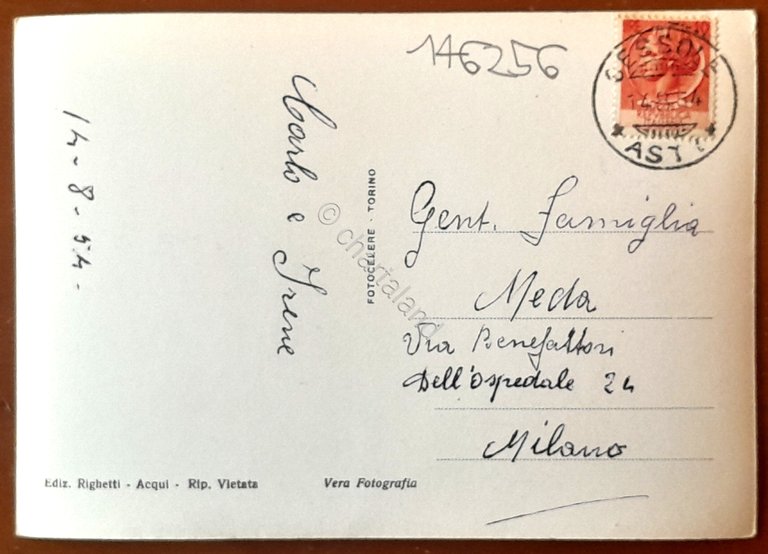 146256
10
CESSOLE
ASTI
14-8-54-
Carlo e Irene
FOTOCELERE - TORINO
© chartaland
Gent. Famiglia
Meda
Via Benefattori
Dell'Ospedale 24
Milano
Ediz. Righetti - Acqui - Rip. Vietata
Vera Fotografia